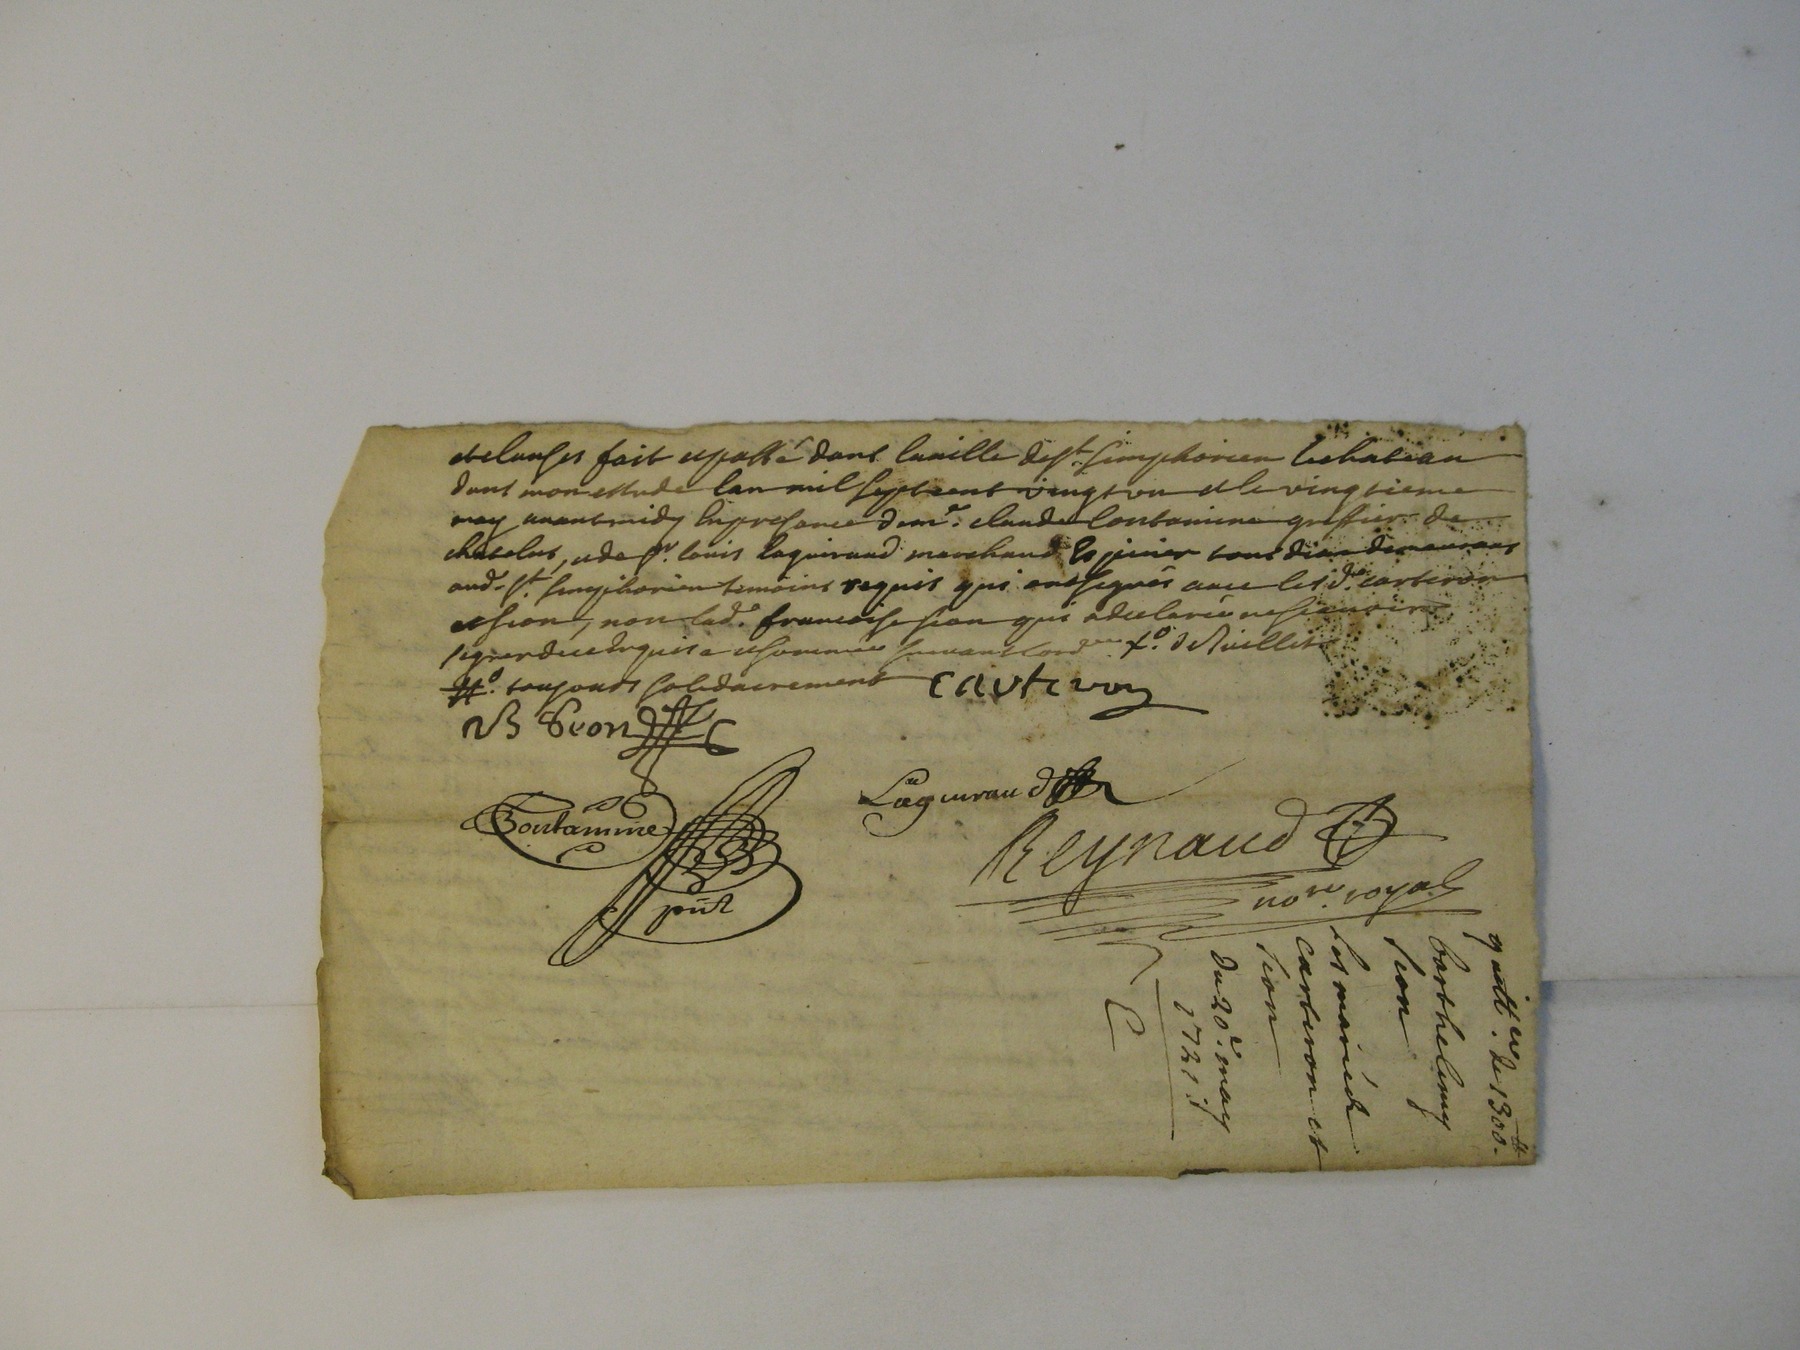 et clauses fait et passé dans la ville de st. simphorien le chateau
dans mon estude lan mil sept cent vingt un et le vingtieme
may avant midy en presance de me. claude Contamine greffier de
chatelus, et de sr. louis Laguiraud marchand tous deux demeurans
aud. st. simphorien temoins requis qui ont signés avec lesd. carteron
et sion, non lad. francoise sion qui a declaré ne scavoir
signer de ce enquise et sommée suivant lord
toujours solidairement Carteron
B Sion
Laguiraud
Contamine
pnt
Reynaud
nore. royal
quittce. de 1300 ₶.
barthelemy
sion
Les mariés
carteron et
sion
Du 20e. may
1721
C